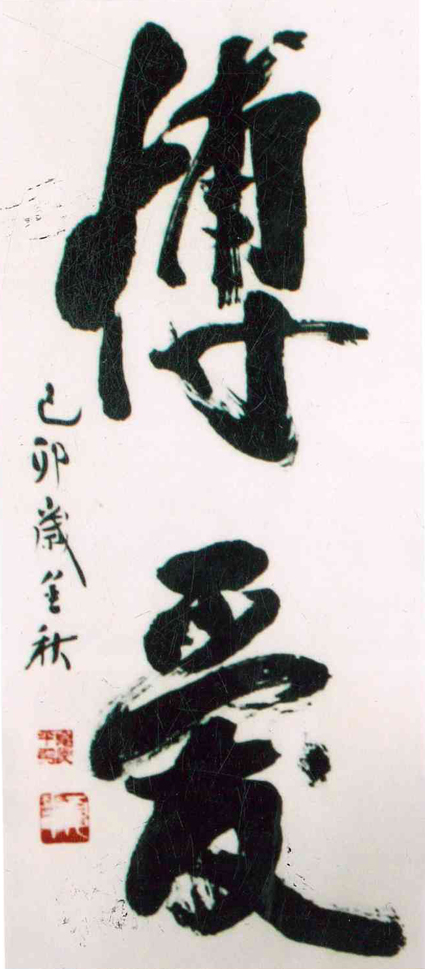 博爱
己卯歲金秋